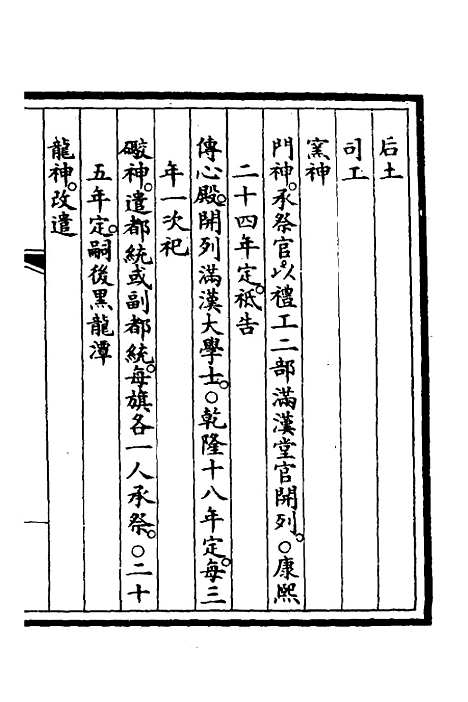 后土
司工
窯神
門神。承祭官。以禮工二部滿漢堂官開列。○康熙
二十四年定。祗告
傳心殿。開列滿漢大學士。○乾隆十八年定。每三
年一次祀
礮神。遣都統或副都統。每旗各一人承祭。○二十
五年定。嗣後黑龍潭
龍神。改遣